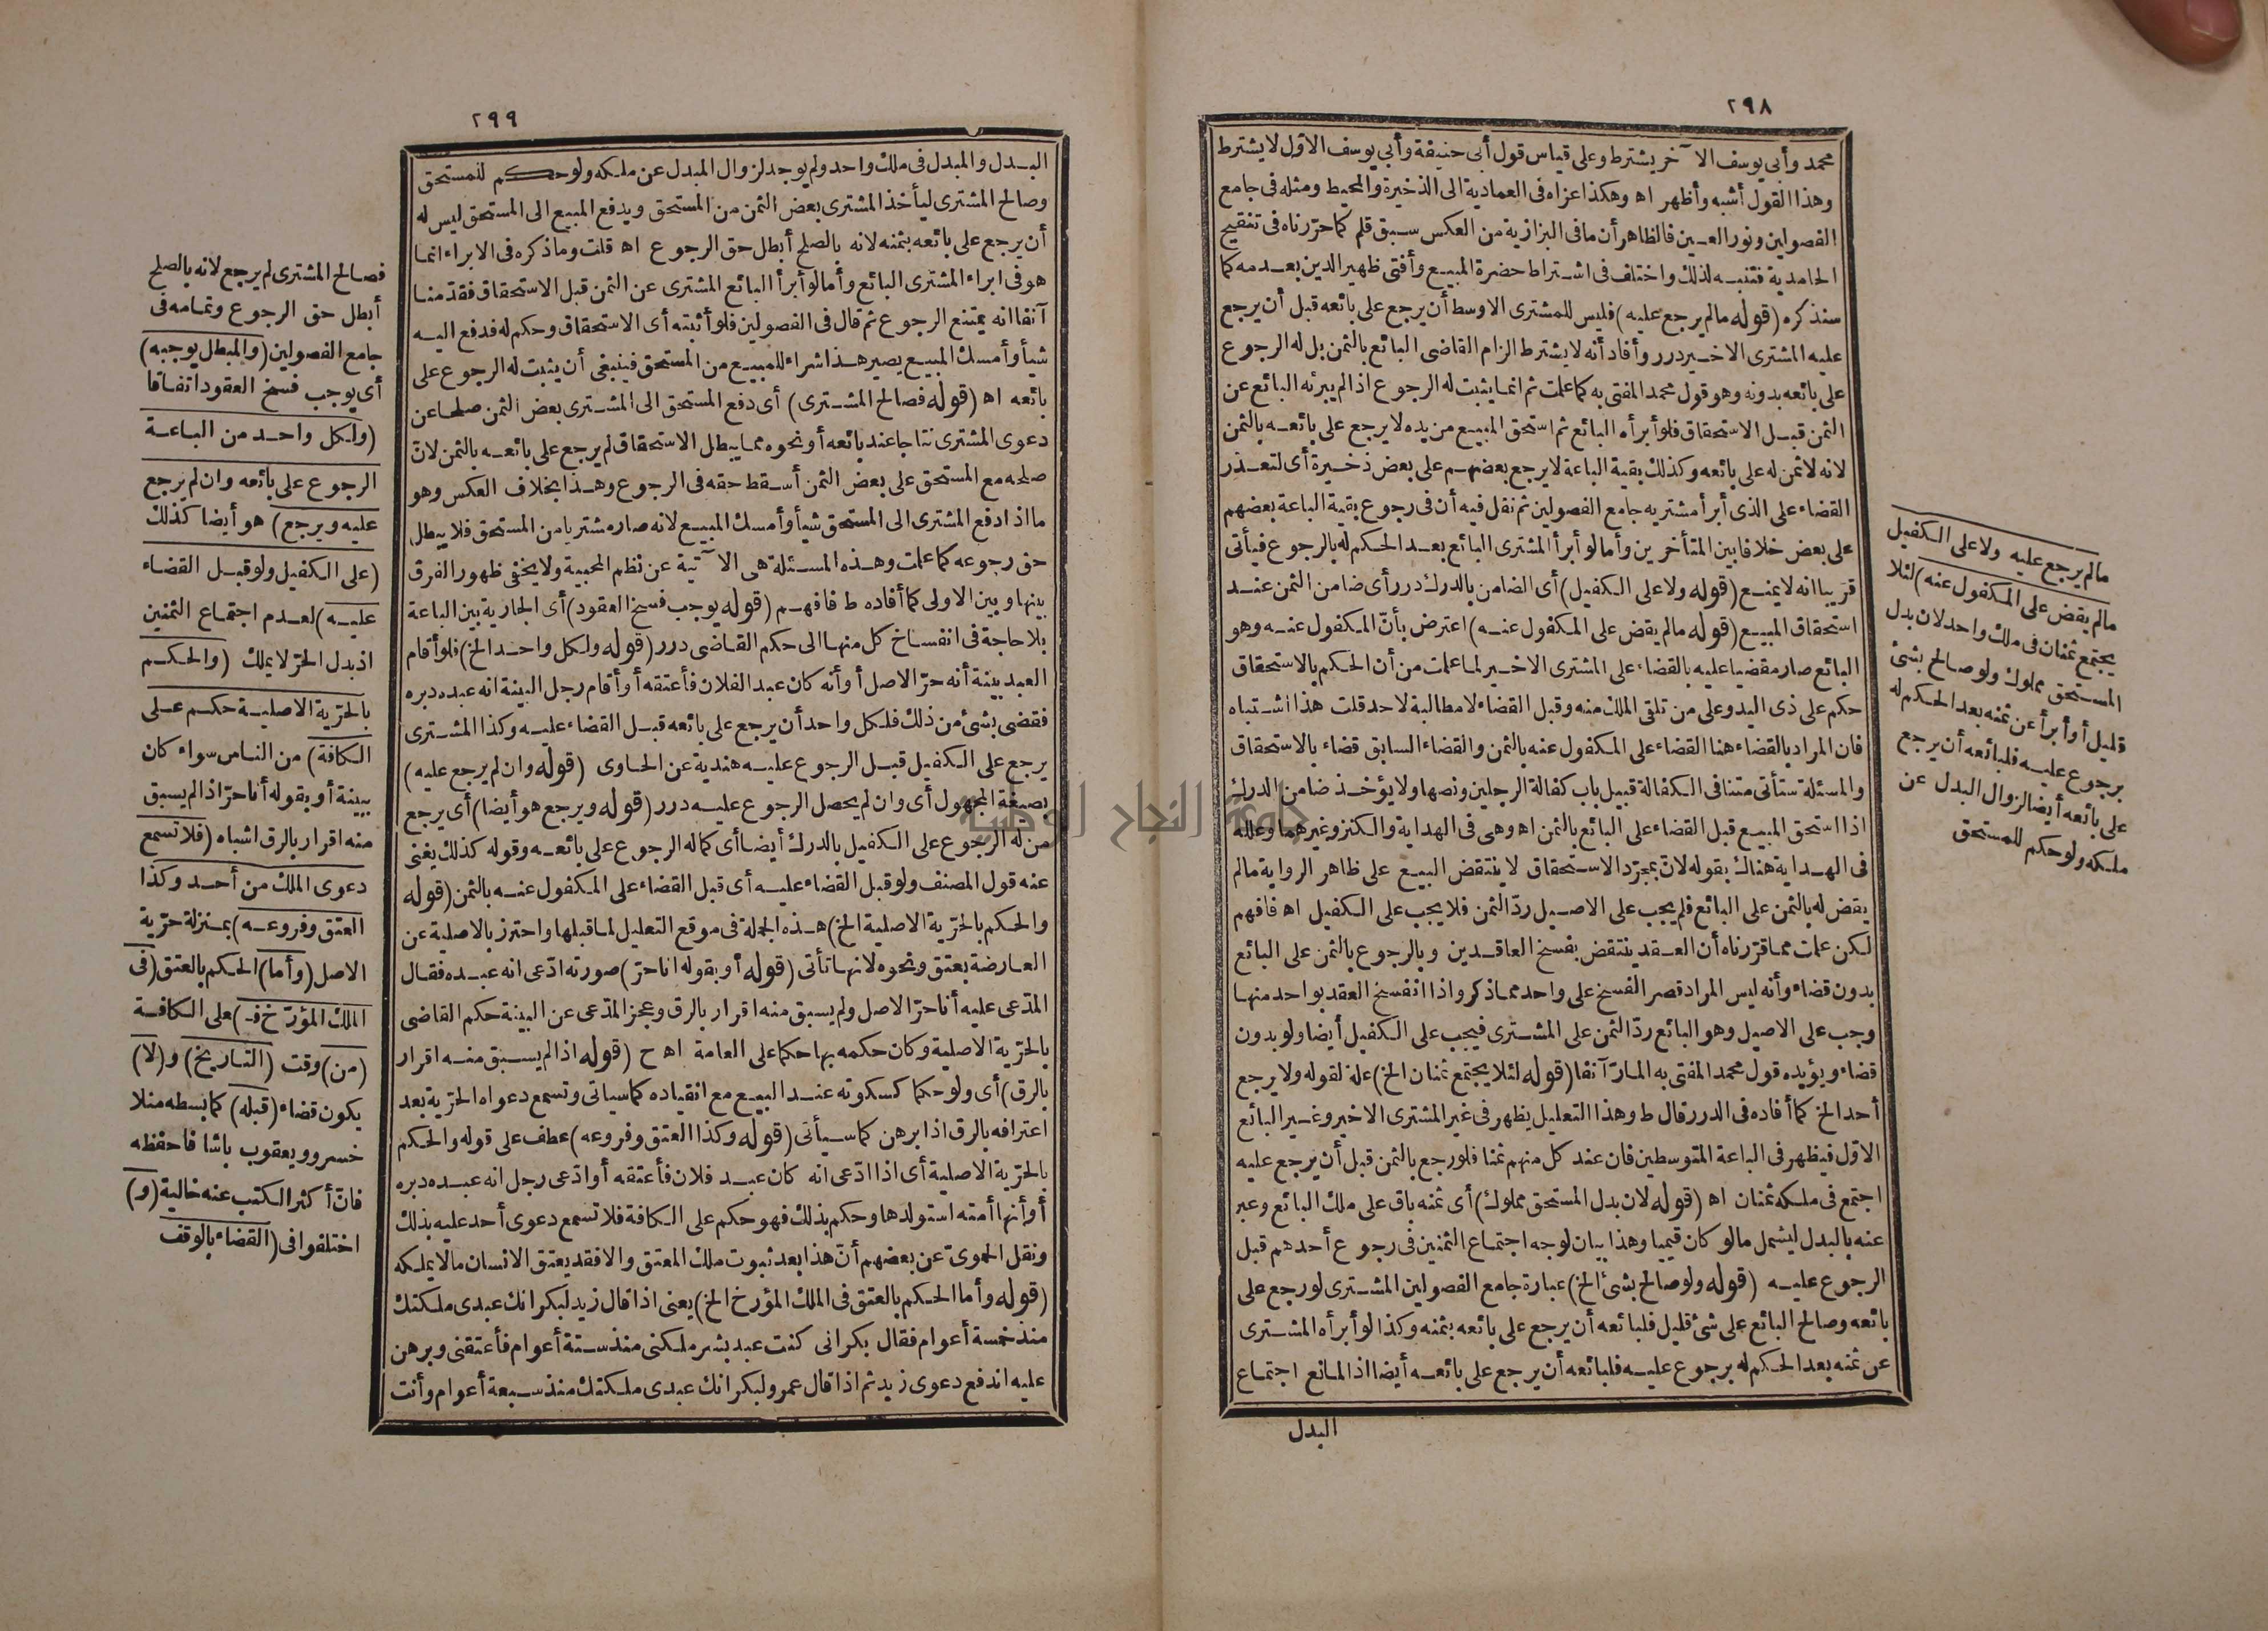 ٢٩٨
محمد وأبى يوسف الآخر يشترط وعلى قياس قول أبى حنيفة وأبى يوسف الاوّل لا يشترط
وهذا القول أشبه وأظهر اه وهكذا عزاه فى العمادية الى الذخيرة والمحيط ومثله فى جامع
الفصولين ونور العين فالظاهر أن ما فى البزازية من العكس سبق قلم كما حرّرناه فى تنقيح
الحامدية فتنبه لذلك واختلف فى اشتراط حضرة المبيع وأفتى ظهير الدين بعدمه كما
سنذكره (قوله مالم يرجع عليه) فليس للمشترى الاوسط أن يرجع على بائعه قبل أن يرجع
عليه المشترى الاخير درر وأفاد أنه لا يشترط الزام القاضى البائع بالثمن بل له الرجوع
على بائعه بدونه وهو قول محمد المفتى به كما علمت ثم انما يثبت له الرجوع اذا لم يبرئه البائع عن
الثمن قبل الاستحقاق فلو أبرأه البائع ثم استحق المبيع من يده لا يرجع على بائعه بالثمن
لانه لا ثمن له على بائعه وكذلك بقية الباعة لا يرجع بعضهم على بعض ذخيرة أى لتعذر
القضاء على الذى أبرأ مشتريه جامع الفصولين ثم نقل فيه أن فى رجوع بقية الباعة بعضهم
على بعض خلافا بين المتأخرين وأما لو أبرأ المشترى البائع بعد الحكم له بالرجوع فيأتى
قريبا انه لا يمنع (قوله ولا على الكفيل) أى الضامن بالدرك درر أى ضامن الثمن عند
استحقاق المبيع (قوله مالم يقض على المكفول عنه) اعترض بأنّ المكفول عنه وهو
البائع صار مقضيا عليه بالقضاء على المشترى الاخير لما علمت من أن الحكم بالاستحقاق
حكم على ذى اليد وعلى من تلقى الملك منه وقبل القضاء لا مطالبة لاحد قلت هذا اشتباه
فان المراد بالقضاء هنا القضاء على المكفول عنه بالثمن والقضاء السابق قضاء بالاستحقاق
والمسئلة ستأتى متنا فى الكفالة قبيل باب كفالة الرجلين ونصها ولا يؤخذ ضامن الدرك
اذا استحق المبيع قبل القضاء على البائع بالثمن اه وهى فى الهداية والكنز وغيرهما وعلله
فى الهداية هناك بقوله لانّ بمجرّد الاستحقاق لا ينتقض البيع على ظاهر الرواية مالم
يقض له بالثمن على البائع فلم يجب على الاصيل ردّ الثمن فلا يجب على الكفيل اه فافهم
لكن علمت مما قرّرناه أن العقد ينتقض بفسخ العاقدين وبالرجوع بالثمن على البائع
بدون قضاء وأنه ليس المراد قصر الفسخ على واحد مما ذكر واذا انفسخ العقد بواحد منها
وجب على الاصيل وهو البائع ردّ الثمن على المشترى فيجب على الكفيل أيضا ولو بدون
قضاء ويؤيده قول محمد المفتى به المارّ آنفا (قوله لئلا يجتمع ثمنان الخ) علة لقوله ولا يرجع
أحد الخ كما أفاده فى الدرر قال ط وهذا التعليل يظهر فى غير المشترى الاخير وغير البائع
الاوّل فيظهر فى الباعة المتوسطين فان عند كل منهم ثمنا فلو رجع بالثمن قبل أن يرجع عليه
اجتمع فى ملكه ثمنان اه (قوله لان بدل المستحق مملوك) أى ثمنه باق على ملك البائع وعبر
عنه بالبدل ليشمل مالو كان قيميا وهذا بيان لوجه اجتماع الثمنين فى رجوع أحدهم قبل
الرجوع عليه (قوله ولو صالح بشئ الخ) عبارة جامع الفصولين المشترى لو رجع على
بائعه وصالح البائع على شئ قليل فلبائعه أن يرجع على بائعه بثمنه وكذا لو أبرأه المشترى
عن ثمنه بعد الحكم له برجوع عليه فلبائعه أن يرجع على بائعه أيضا اذ المانع اجتماع
البدل
مالم يرجع عليه ولا على الكفيل
مالم يقض على المكفول عنه) لئلا
يجتمع ثمنان فى ملك واحد لان بدل
المستحق مملوك ولو صالح بشئ
قليل أو أبرأ عن ثمنه بعد الحكم له
برجوع عليه فلبائعه أن يرجع
على بائعه أيضا لزوال البدل عن
ملكه ولو حكم للمستحق
٢٩٩
البدل والمبدل فى ملك واحد ولم يوجد لزوال المبدل عن ملكه ولو حكم للمستحق
وصالح المشترى ليأخذ المشترى بعض الثمن من المستحق ويدفع المبيع الى المستحق ليس له
أن يرجع على بائعه بثمنه لانه بالصلح أبطل حق الرجوع اه قلت وما ذكره فى الابراء انما
هو فى ابراء المشترى البائع وأما لو أبرأ البائع المشترى عن الثمن قبل الاستحقاق فقدّمنا
آنفا انه يمتنع الرجوع ثم قال فى الفصولين فلو أثبته أى الاستحقاق وحكم له فدفع اليه
شيأ وأمسك المبيع يصير هذا شراء للمبيع من المستحق فينبغى أن يثبت له الرجوع على
بائعه اه (قوله فصالح المشترى) أى دفع المستحق الى المشترى بعض الثمن صلحا عن
دعوى المشترى نتاجا عند بائعه أو نحوه مما يبطل الاستحقاق لم يرجع على بائعه بالثمن لانّ
صلحه مع المستحق على بعض الثمن أسقط حقه فى الرجوع وهذا بخلاف العكس وهو
ما اذا دفع المشترى الى المستحق شيأ وأمسك المبيع لانه صار مشتريا من المستحق فلا يبطل
حق رجوعه كما علمت وهذه المسئلة هى الآتية عن نظم المحبية ولا يخفى ظهور الفرق
بينها وبين الاولى كما أفاده ط فافهم (قوله يوجب فسخ العقود) أى الجارية بين الباعة
بلا حاجة فى انفساخ كل منها الى حكم القاضى درر (قوله ولكل واحد الخ) فلو أقام
العبد بينة أنه حرّ الاصل أو أنه كان عبد الفلان فأعتقه أو أقام رجل البينة انه عبده دبره
فقضى بشئ من ذلك فلكل واحد أن يرجع على بائعه قبل القضاء عليه وكذا المشترى
يرجع على الكفيل قبل الرجوع عليه هندية عن الحاوى (قوله وان لم يرجع عليه)
بصيغة المجهول أى وان لم يحصل الرجوع عليه درر (قوله ويرجع هو أيضا) أى يرجع
من له الرجوع على الكفيل بالدرك أيضا أى كما له الرجوع على بائعه وقوله كذلك يغنى
عنه قول المصنف ولو قبل القضاء عليه أى قبل القضاء على المكفول عنه بالثمن (قوله
والحكم بالحرّية الاصلية الخ) هذه الجملة فى موقع التعليل لما قبلها واحترز بالاصلية عن
العارضة بعتق ونحوه لانها تأتى (قوله أو بقوله انا حرّ) صورته ادّعى انه عبده فقال
المدّعى عليه أنا حرّ الاصل ولم يسبق منه اقرار بالرق وعجز المدّعى عن البينة حكم القاضى
بالحرّية الاصلية وكان حكمه بها حكما على العامة اه ح (قوله اذا لم يسبق منه اقرار
بالرق) أى ولو حكما كسكوته عند البيع مع انقياده كما سيأتى وتسمع دعواه الحرّية بعد
اعترافه بالرق اذا برهن كما سيأتى (قوله وكذا العتق وفروعه) عطف على قوله والحكم
بالحرّية الاصلية أى اذا ادّعى انه كان عبد فلان فأعتقه أو ادّعى رجل انه عبده دبره
أو أنها أمته استولدها وحكم بذلك فهو حكم على الكافة فلا تسمع دعوى أحد عليه بذلك
ونقل الحموىّ عن بعضهم أنّ هذا بعد ثبوت ملك المعتق والا فقد يعتق الانسان مالا يملكه
(قوله وأما الحكم بالعتق فى الملك المؤرخ الخ) يعنى اذا قال زيد لبكر انك عبدى ملكتك
منذ خمسة أعوام فقال بكر انى كنت عبد بشر ملكنى منذ ستة أعوام فأعتقنى وبرهن
عليه اندفع دعوى زيد ثم اذا قال عمرو لبكر انك عبدى ملكتك منذ سبعة أعوام وأنت
فصالح المشترى لم يرجع لانه بالصلح
أبطل حق الرجوع وتمامه فى
جامع الفصولين (والمبطل يوجبه)
أى يوجب فسخ العقود اتفاقا
(ولكل واحد من الباعة
الرجوع على بائعه وان لم يرجع
عليه ويرجع) هو أيضا كذلك
(على الكفيل ولو قبل القضاء
عليه) لعدم اجتماع الثمنين
اذ بدل الحرّ لا يملك (والحكم
بالحرّية الاصلية حكم على
الكافة) من الناس سواء كان
ببينة أو بقوله أنا حرّ اذا لم يسبق
منه اقرار بالرق اشباه (فلا تسمع
دعوى الملك من أحد وكذا
العتق وفروعه) بمنزلة حرّية
الاصل (وأما) الحكم بالعتق (فى
الملك المؤرّخ فـ) على الكافة
(من) وقت (التاريخ) و(لا)
يكون قضاء (قبله) كما بسطه منلا
خسرو ويعقوب باشا فاحفظه
فانّ أكثر الكتب عنه خالية (و)
اختلفوا فى (القضاء بالوقف
جامعة النجاح الوطنية